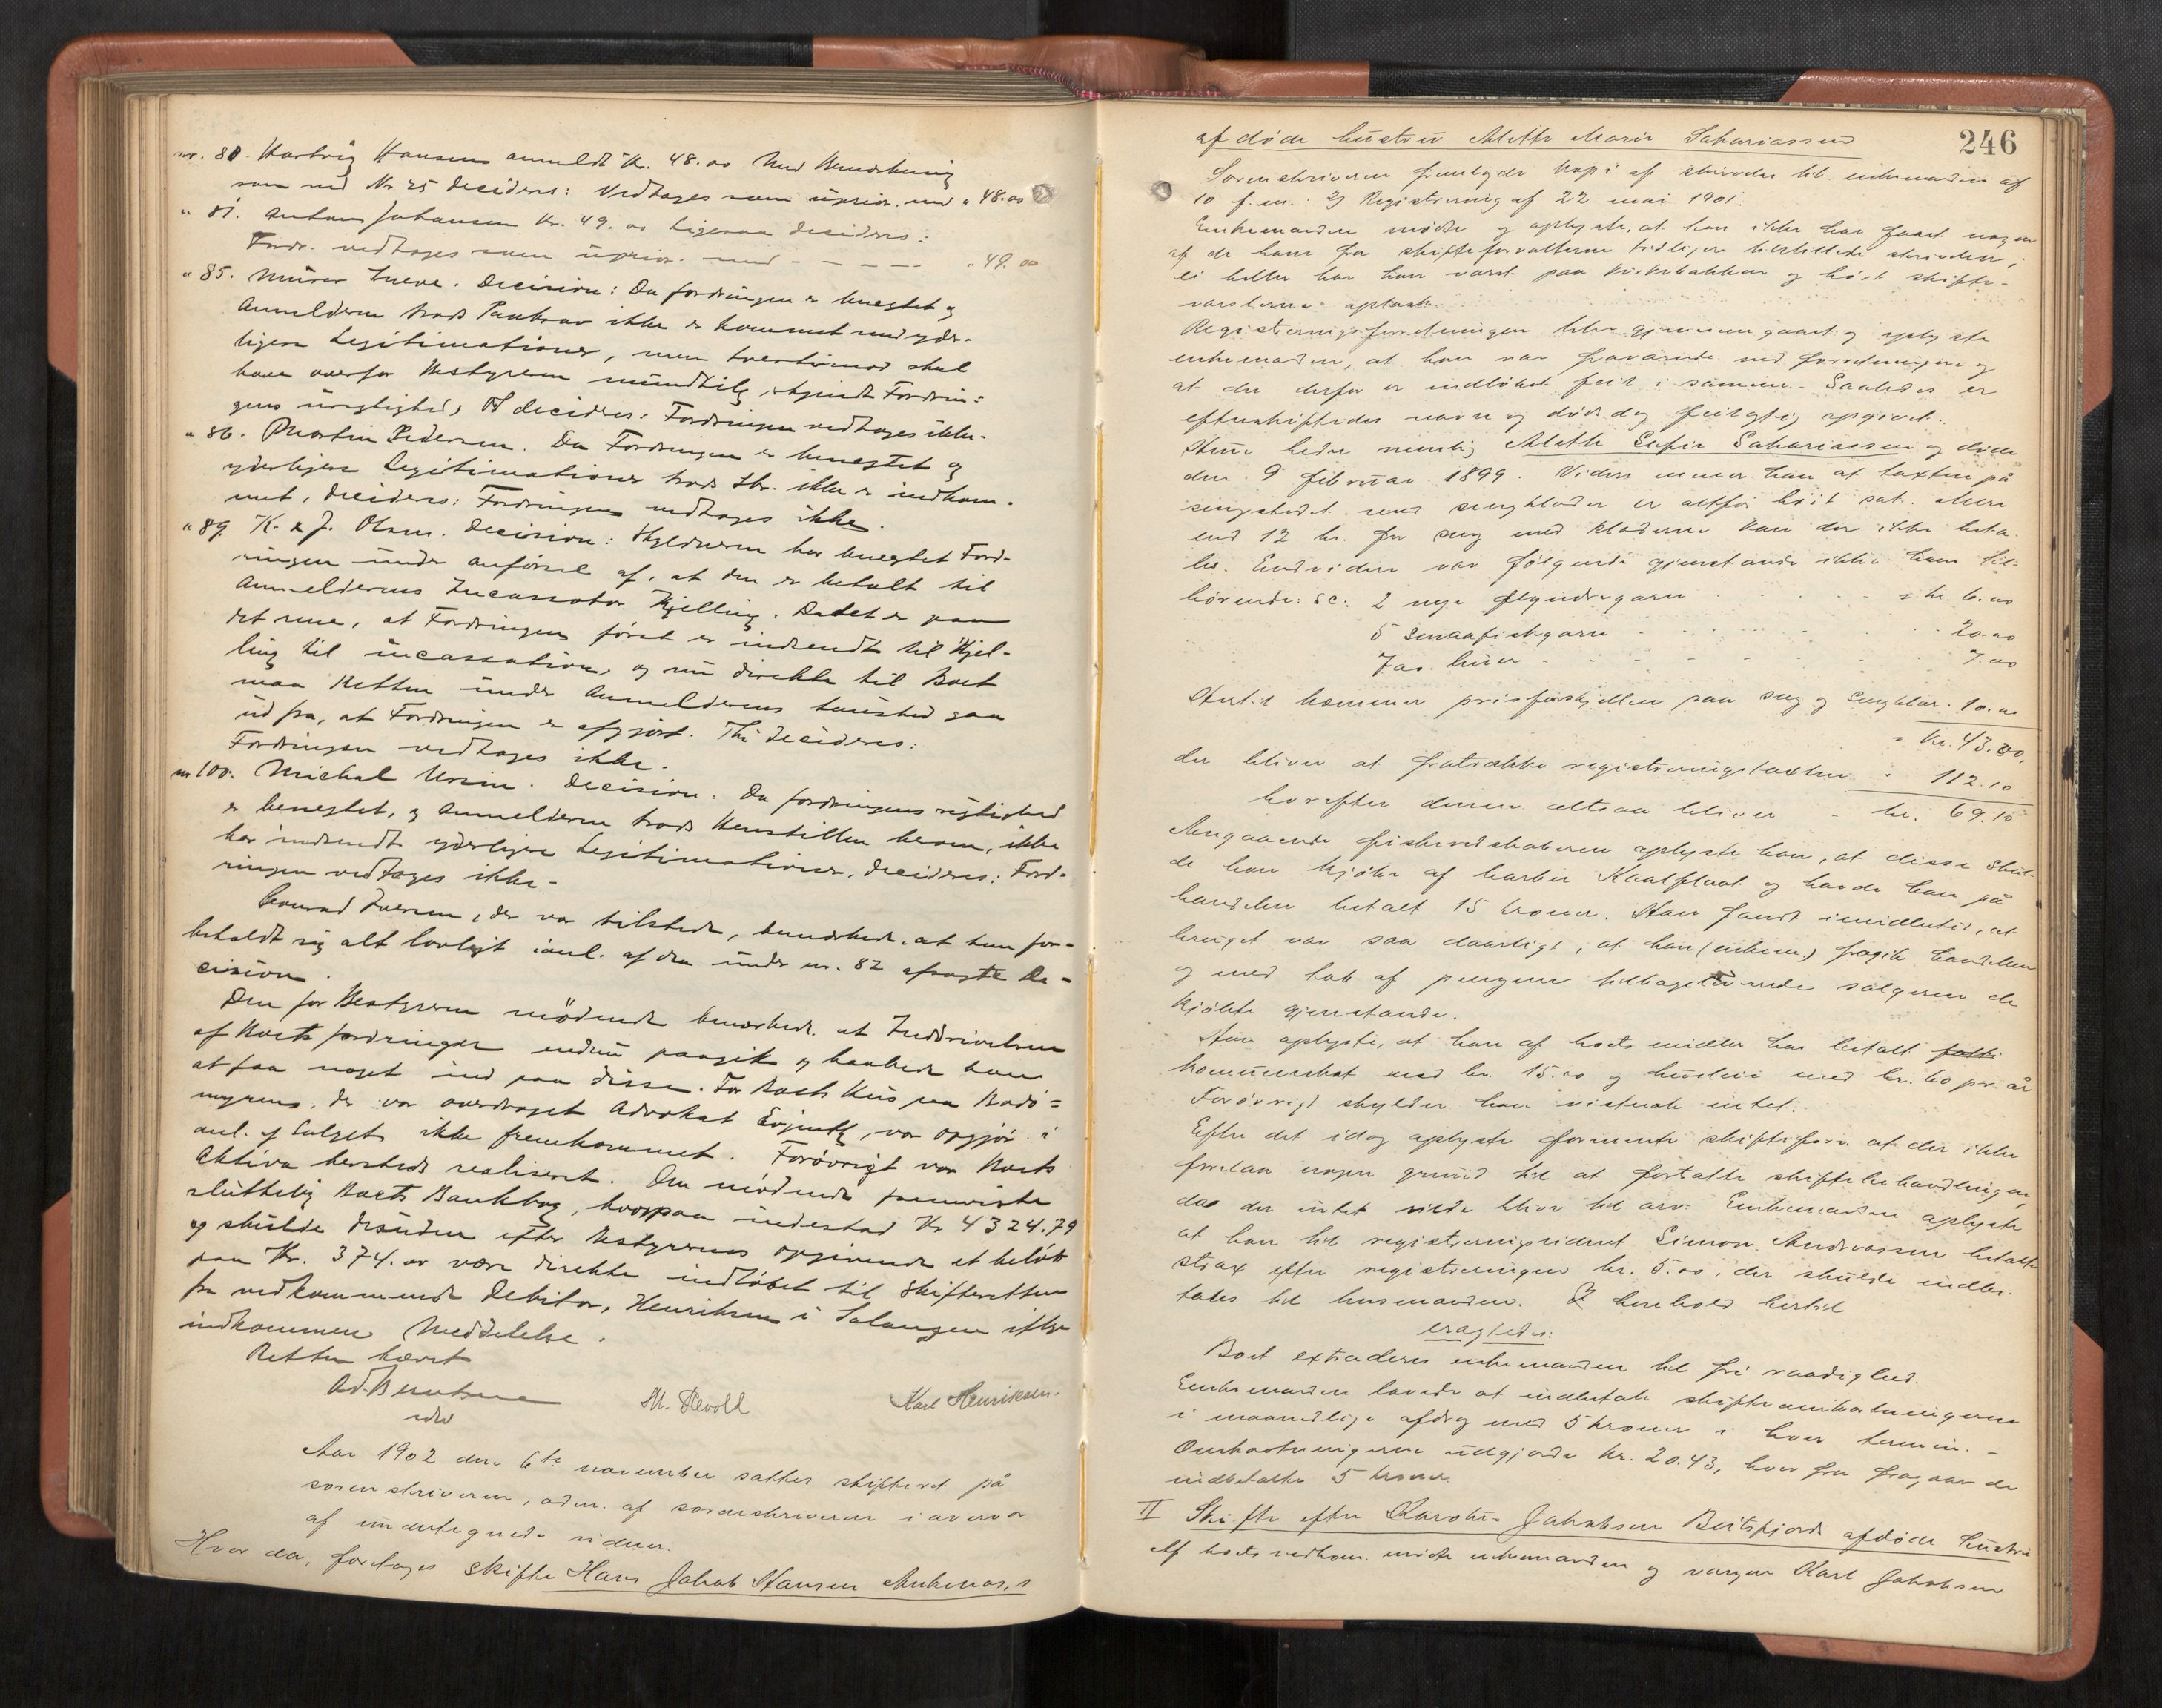 nr. 80. Hartvig Hansen anmeldt Kr. 48.00 Med Bemærkning
som ved Nr 25 decideres: Vedtages som uprior. med " 48.00
" 81. Anton Johansen Kr. 49.00 Ligesaa decideres:
Fordr. vedtages som uprior. med - - - - - " 49.00
" 85. Murer Lueve. Decision: Da fordringen er benegtet og
Anmelderen trods Paakrav ikke er kommet med yder-
ligere Legitimationer, men tvertimod skal
have overfor Bestyreren mundtlig erkjendt Fordrin-
gens urigtighed, decideres: Fordringen vedtages ikke.
" 86. Martin Pedersen. Da Fordringen er benegtet og
yderligere Legitimationer trods ikke er indkom-
met, decideres: Fordringen vedtages ikke.
" 89. K. & J. Olsen. Decision: Skyldneren har benegtet Ford-
ringen under anførsel af, at den er betalt til
Anmelderens Incassator Kjelling. Da det er paa
det rene, at Fordringen først er indsendt til Kjel-
ling til incassation, og nu direkte til Boet
maa Retten under Anmelderens taushed gaa
ud fra, at Fordringen er afgjort. Thi decideres:
Fordringen vedtages ikke.
nr 100. Michal Ursin. Decision. Da fordringens rigtighed
er benegtet, og Anmelderen trods Henstillen herom, ikke
har indsendt yderligere Legitimationer, decideres: Ford-
ringen vedtages ikke.-
Conrad Iversen, der var tilstede, bemærkede, at han for-
beholdt sig alt lovligt i anl. af den under nr. 82 afsagte De-
cision.
Den for Bestyreren mødende bemærkede at Inddrivelsen
af Boets fordringer endnu paagik og haabede han
at faa noget ind paa disse. For Boets Hus paa Bodø-
myrene, der var overdraget Advokat Evjenth, var opgjør i
anl. af Salget ikke fremkommet. Forøvrigt var Boets
Aktiva hersteds realiseret. Den mødende fremviste
sluttelig Boets Bankbog, hvorpaa indestod Kr 4324.79
og skulde desuden efter Bestyrerens opgivende et beløb
paa Kr. 374.00 være direkte indløbet til Skifteretten
fra vedkommende Debitor, Henriksen i Salangen ifølge
indkommen Meddelelse.
Retten hævet
Ad. Berntsen
M. Hevold
Karl Henriksen.
Aar 1902 den 6te november sattes skifteret på
sorenskriveren, adm. af sorenskriveren i overvær
af undertegnede vidner.
Hvor da, foretages Skifte Hans Jakob Hansen
246
afdøde hustru Aleth Marie Sakariassen
Sorenskriveren fremlagde kopi af skrivelse til enkemanden af
10 f.m. 2) Registrering af 22 mai 1901.
Enkemanden mødte og oplyste, at han ikke har faaet nogen
af de ham fra skifteforvalteren tidligere tilstillede skrivelser,
ei heller har han været paa kirkebakken og hørt skifte-
varslerne oplæst.
Registreringsforretningen blev gjennemgaaet og oplyste
enkemanden, at han var fraværende ved forretningen og
at der derfor er indløbet feil i samme. Saaledes er
efterskiftedes navn og dødsdag feilagtig opgivet.
Hun heder nemlig Aleth Sofie Sakariassen og døde
den 9 februar 1899. Videre mener han at taxten på
sengstedet med sengklæder er altfor høit sat. Mere
end 12 kr. for seng med klæderne kan der ikke beta-
les. Endvidere var følgende gjenstande ikke ham til-
hørende: sc: 2 nye flyndregarn - - - - " kr. 6.00
5 smaafiskgarn - - - - " 20.00
7 liner - - - - - " 7.00
Hertil kommer prisforskjellen paa seng og sengklær. 10.00
" Kr. 43.00,
der bliver at fratrække registreringstaxten " 112.10
hvorefter denne altsaa bliver - kr. 69.10
Angaaende fiskeredskaberne oplyste han, at disse skul-
de han kjøbe af Kaalplaat og havde han på
handelen betalt 15 kroner. Han fandt imidlertid, at
bruget var saa daarligt, at han (enkem.) fragik handelen
og med tab af pengene tilbageleverede sælgeren de
kjøbte gjenstande.
Han oplyste, at han af boets midler har betalt
kommuneskat med kr. 15.00 og husleie med kr. 60 pr. år
Forøvrigt skylder han vistnok intet.
Efter det idag oplyste formente skifteforv. at der ikke
forelaa nogen grund til at fortsætte skiftebehandlingen,
da der intet vilde blive til arv. Enkemanden oplyste
at han til registreringsvidnet Simon Andreassen betalte
strax efter registreringen kr. 5.00, der skulde indbe-
tales til lensmanden. I henhold hertil
eragtedes:
Boet extraderes enkemanden til fri raadighed.
Enkemanden lovede at indbetale skifteomkostningerne
i maanedlige afdrag med 5 kroner i hver termin. -
Omkostningerne udgjorde kr. 20.43, hver fra fragaar de
indbetalte 5 kroner.
II Skifte efter Karoline Jakobsen Beitsfjord afdøde hustru
Af boets vedkom. mødte enkemanden og værgen Karl Jakobsen